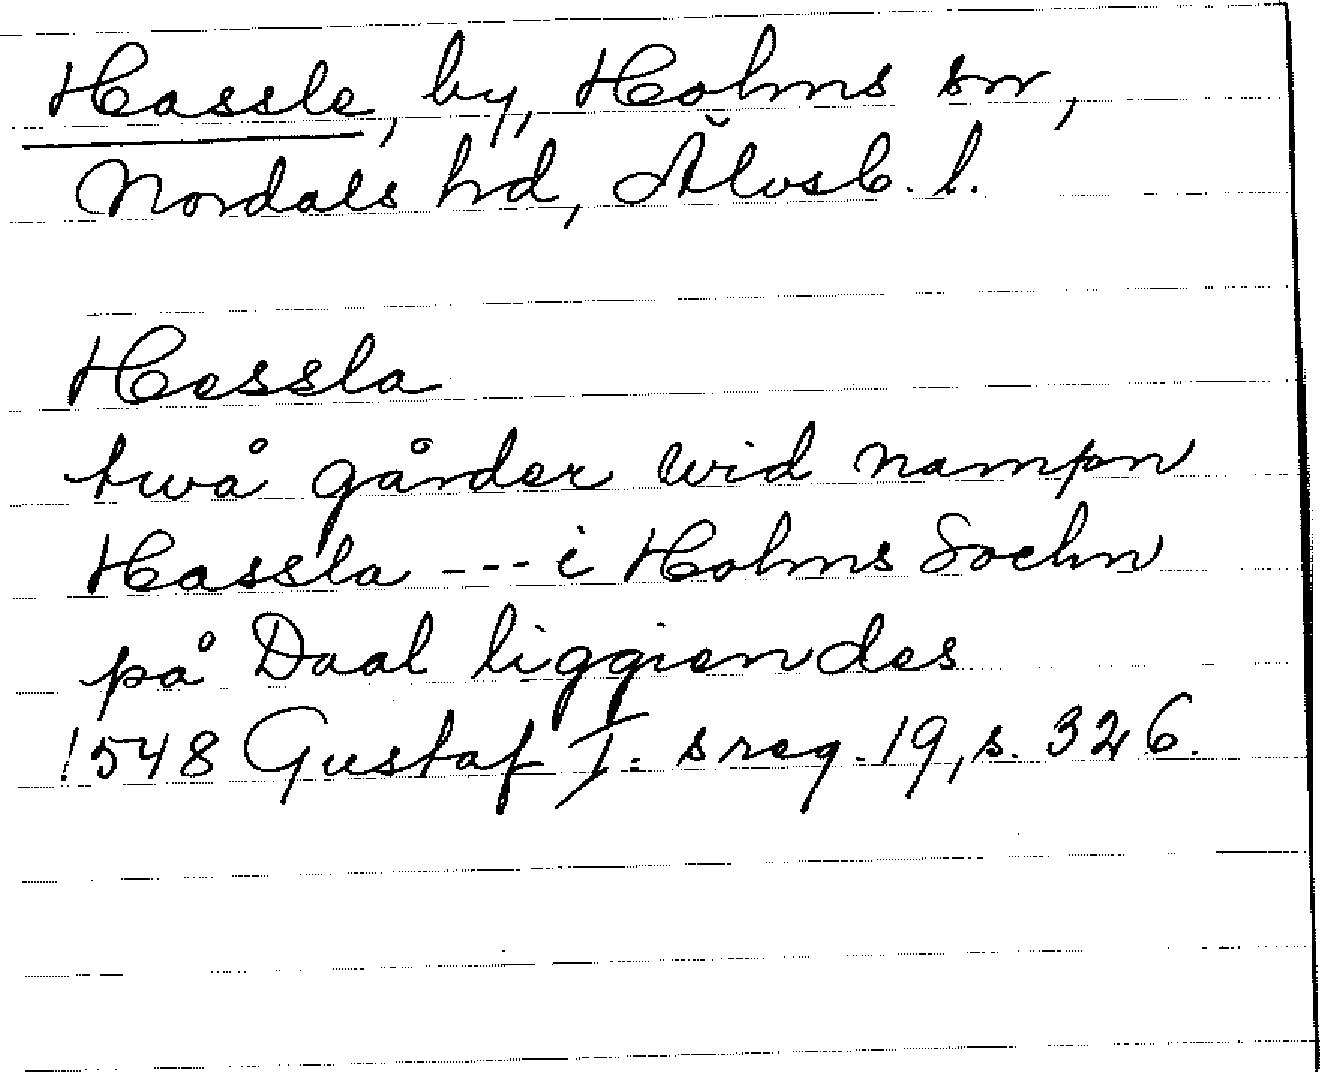 Hassle, by, Holms sn,
Nordals hd, Älvsb. l.
Hassla
twå gårder wid nampn
Hassla --- i Holms Sochn
på Daal liggiendes
1548 Gustaf I. s reg. 19, s. 326.